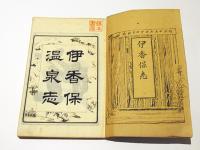 伊香保志
伊香保
温泉志